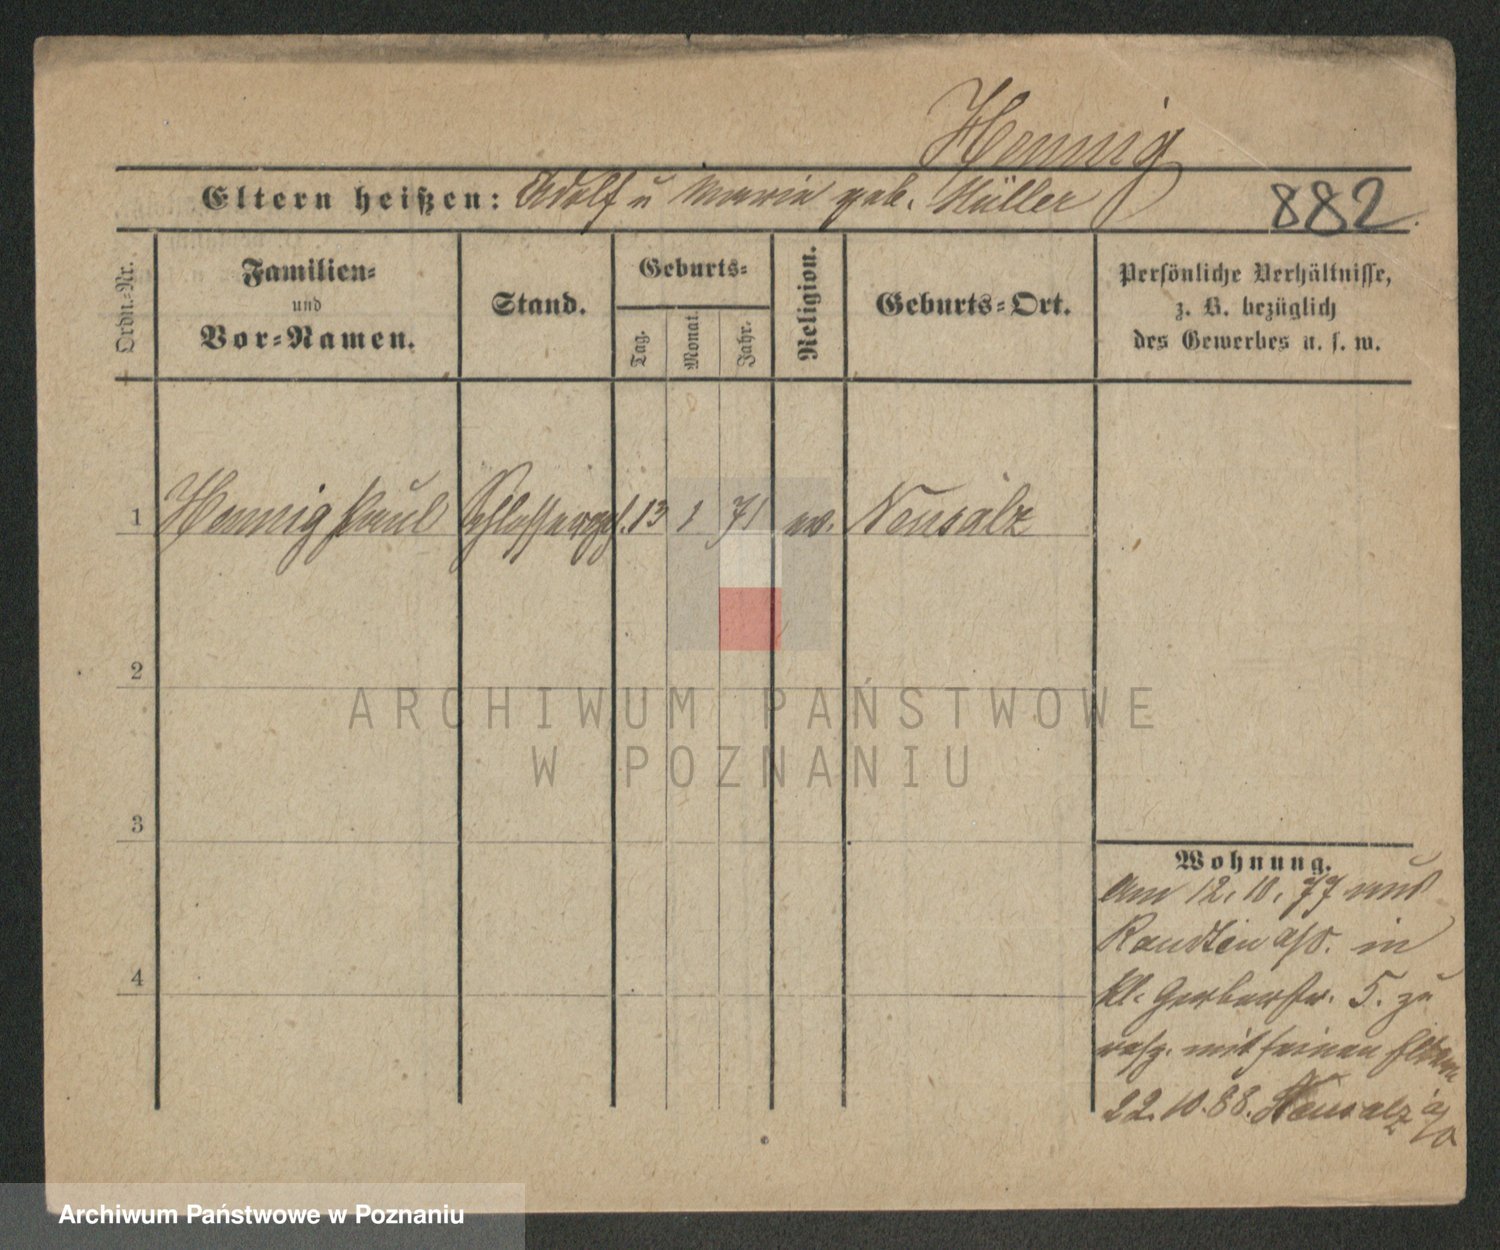 Hennig
Eltern heißen: Adolf u Maria geb. Müller
882
Ordn.-Nr.
Familien-
und
Vor-Namen.
Stand.
Geburts-
Tag.
Monat.
Jahr.
Religion.
Geburts-Ort.
Persönliche Verhältnisse,
z. B. bezüglich
des Gewerbes u. s. w.
1 Hennig Paul Schlosserges. 13 1 71 ev. Neusalz
2
ARCHIWUM PAŃSTWOWE
W POZNANIU
3
Wohnung.
am 12. 10. 77 aus
a/O. in
Kl. Gerberstr. 5. zu
mit seinen Eltern
22. 10. 88. Neusalz a/O
4
Archiwum Państwowe w Poznaniu